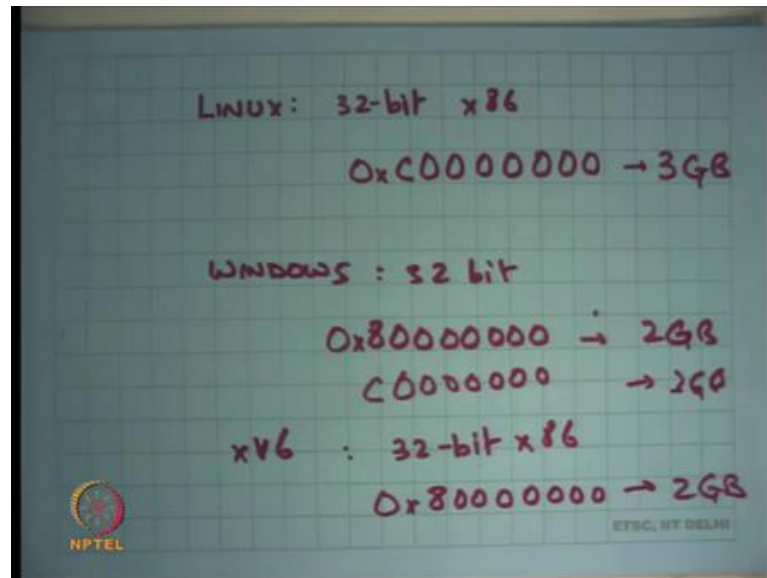 LINUX: 32-bit x86
0xC0000000 → 3GB
WINDOWS : 32 bit
0x80000000 → 2GB
C0000000 →
xv6 : 32-bit x86
0x80000000 → 2GB
NPTEL
ETSC, IIT DELHI